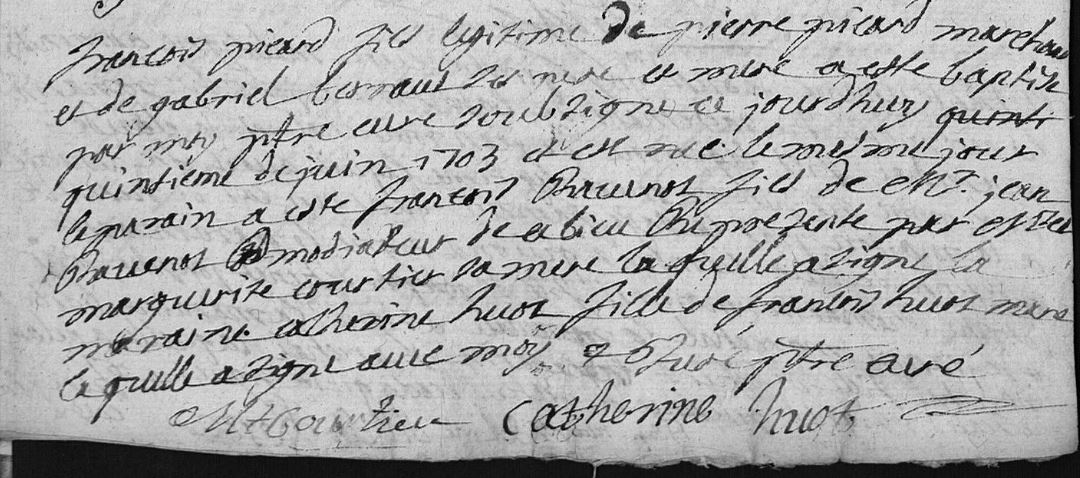 francois picard fils legitime de pierre picard marchan
et de gabriel bernaut ses pere et mere a este baptise
par moy ptre cure soubsigne ce jourdhuy quinti
quintieme de juin 1703 et est nee le mesme jour
le parain a este francois Rauenot fils de Mr. jean
Rauenot modiateur de represente par
marguerite courtier sa mere laquelle a signe la
maraine catherine huot fille de francois huot marc
laquelle a signe auec moy ptre curé
M Courtier Catherine huot